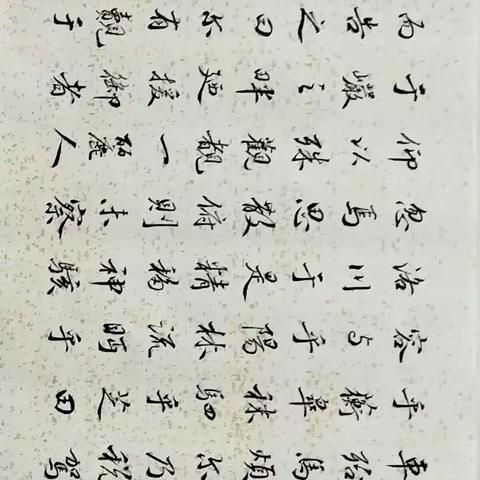 車殆馬煩尔乃稅駕
乎蘅皋秣駟乎芝田
容与乎陽林流眄乎
洛川于是精移神駭
忽焉思散俯則未察
仰以殊觀覩一麗人
于巖之畔廼援御者
而告之曰尔有覿于